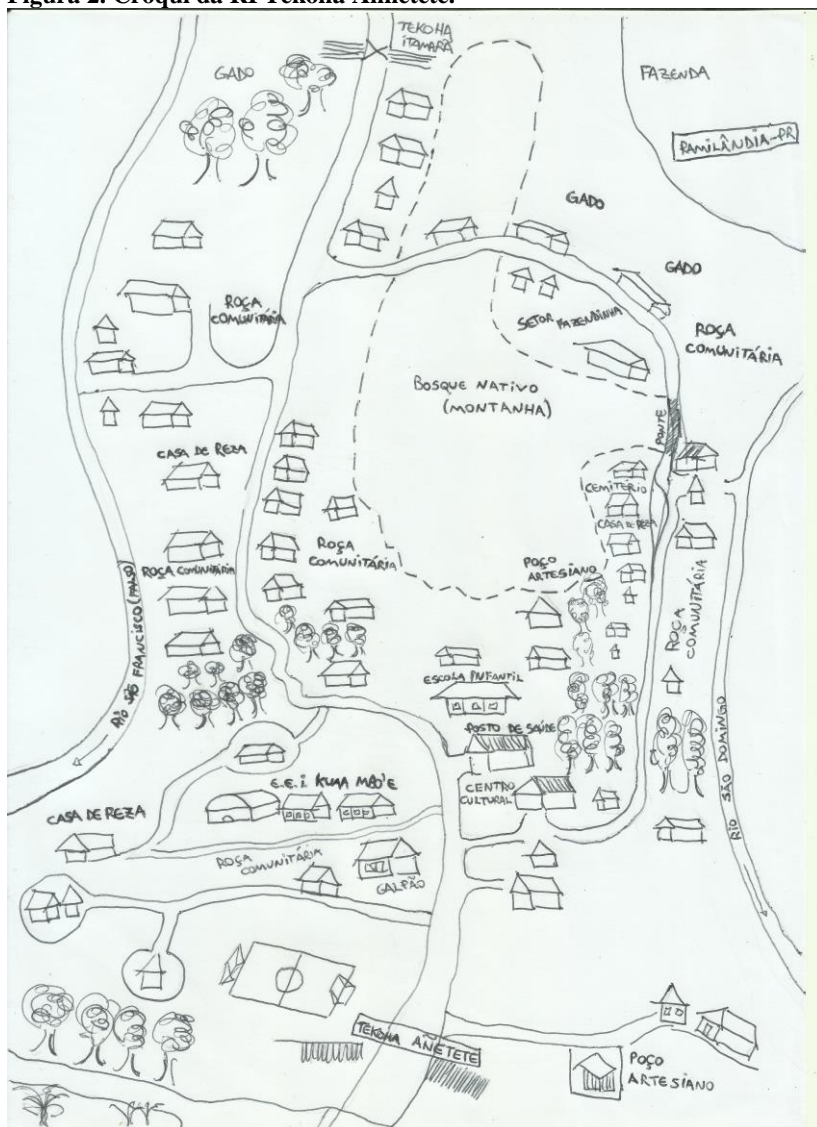 Figura 2. Croqui da RI Tekoha Añnetete.
TEKOHA
ITAMARÃ
GADO
FAZENDA
RAMILÂNDIA-PR
GADO
GADO
ROÇA
COMUNITÁRIA
SETOR FAZENDINHA
ROÇA
COMUNITÁRIA
BOSQUE NATIVO
(MONTANHA)
PONTE
CASA DE REZA
CEMITÉRIO
CASA DE REZA
ROÇA
COMUNITÁRIA
POÇO
ARTESIANO
ROÇA COMUNITÁRIA
ROÇA
COMUNITÁRIA
RIO SÃO FRANCISCO (FALSO)
ESCOLA INFANTIL
POSTO DE SAÚDE
RIO SÃO DOMINGO
E.E.I KUAA MBO'E
CENTRO
CULTURAL
CASA DE REZA
ROÇA
COMUNITÁRIA
GALPÃO
TEKOHA AÑETETE
POÇO
ARTESIANO